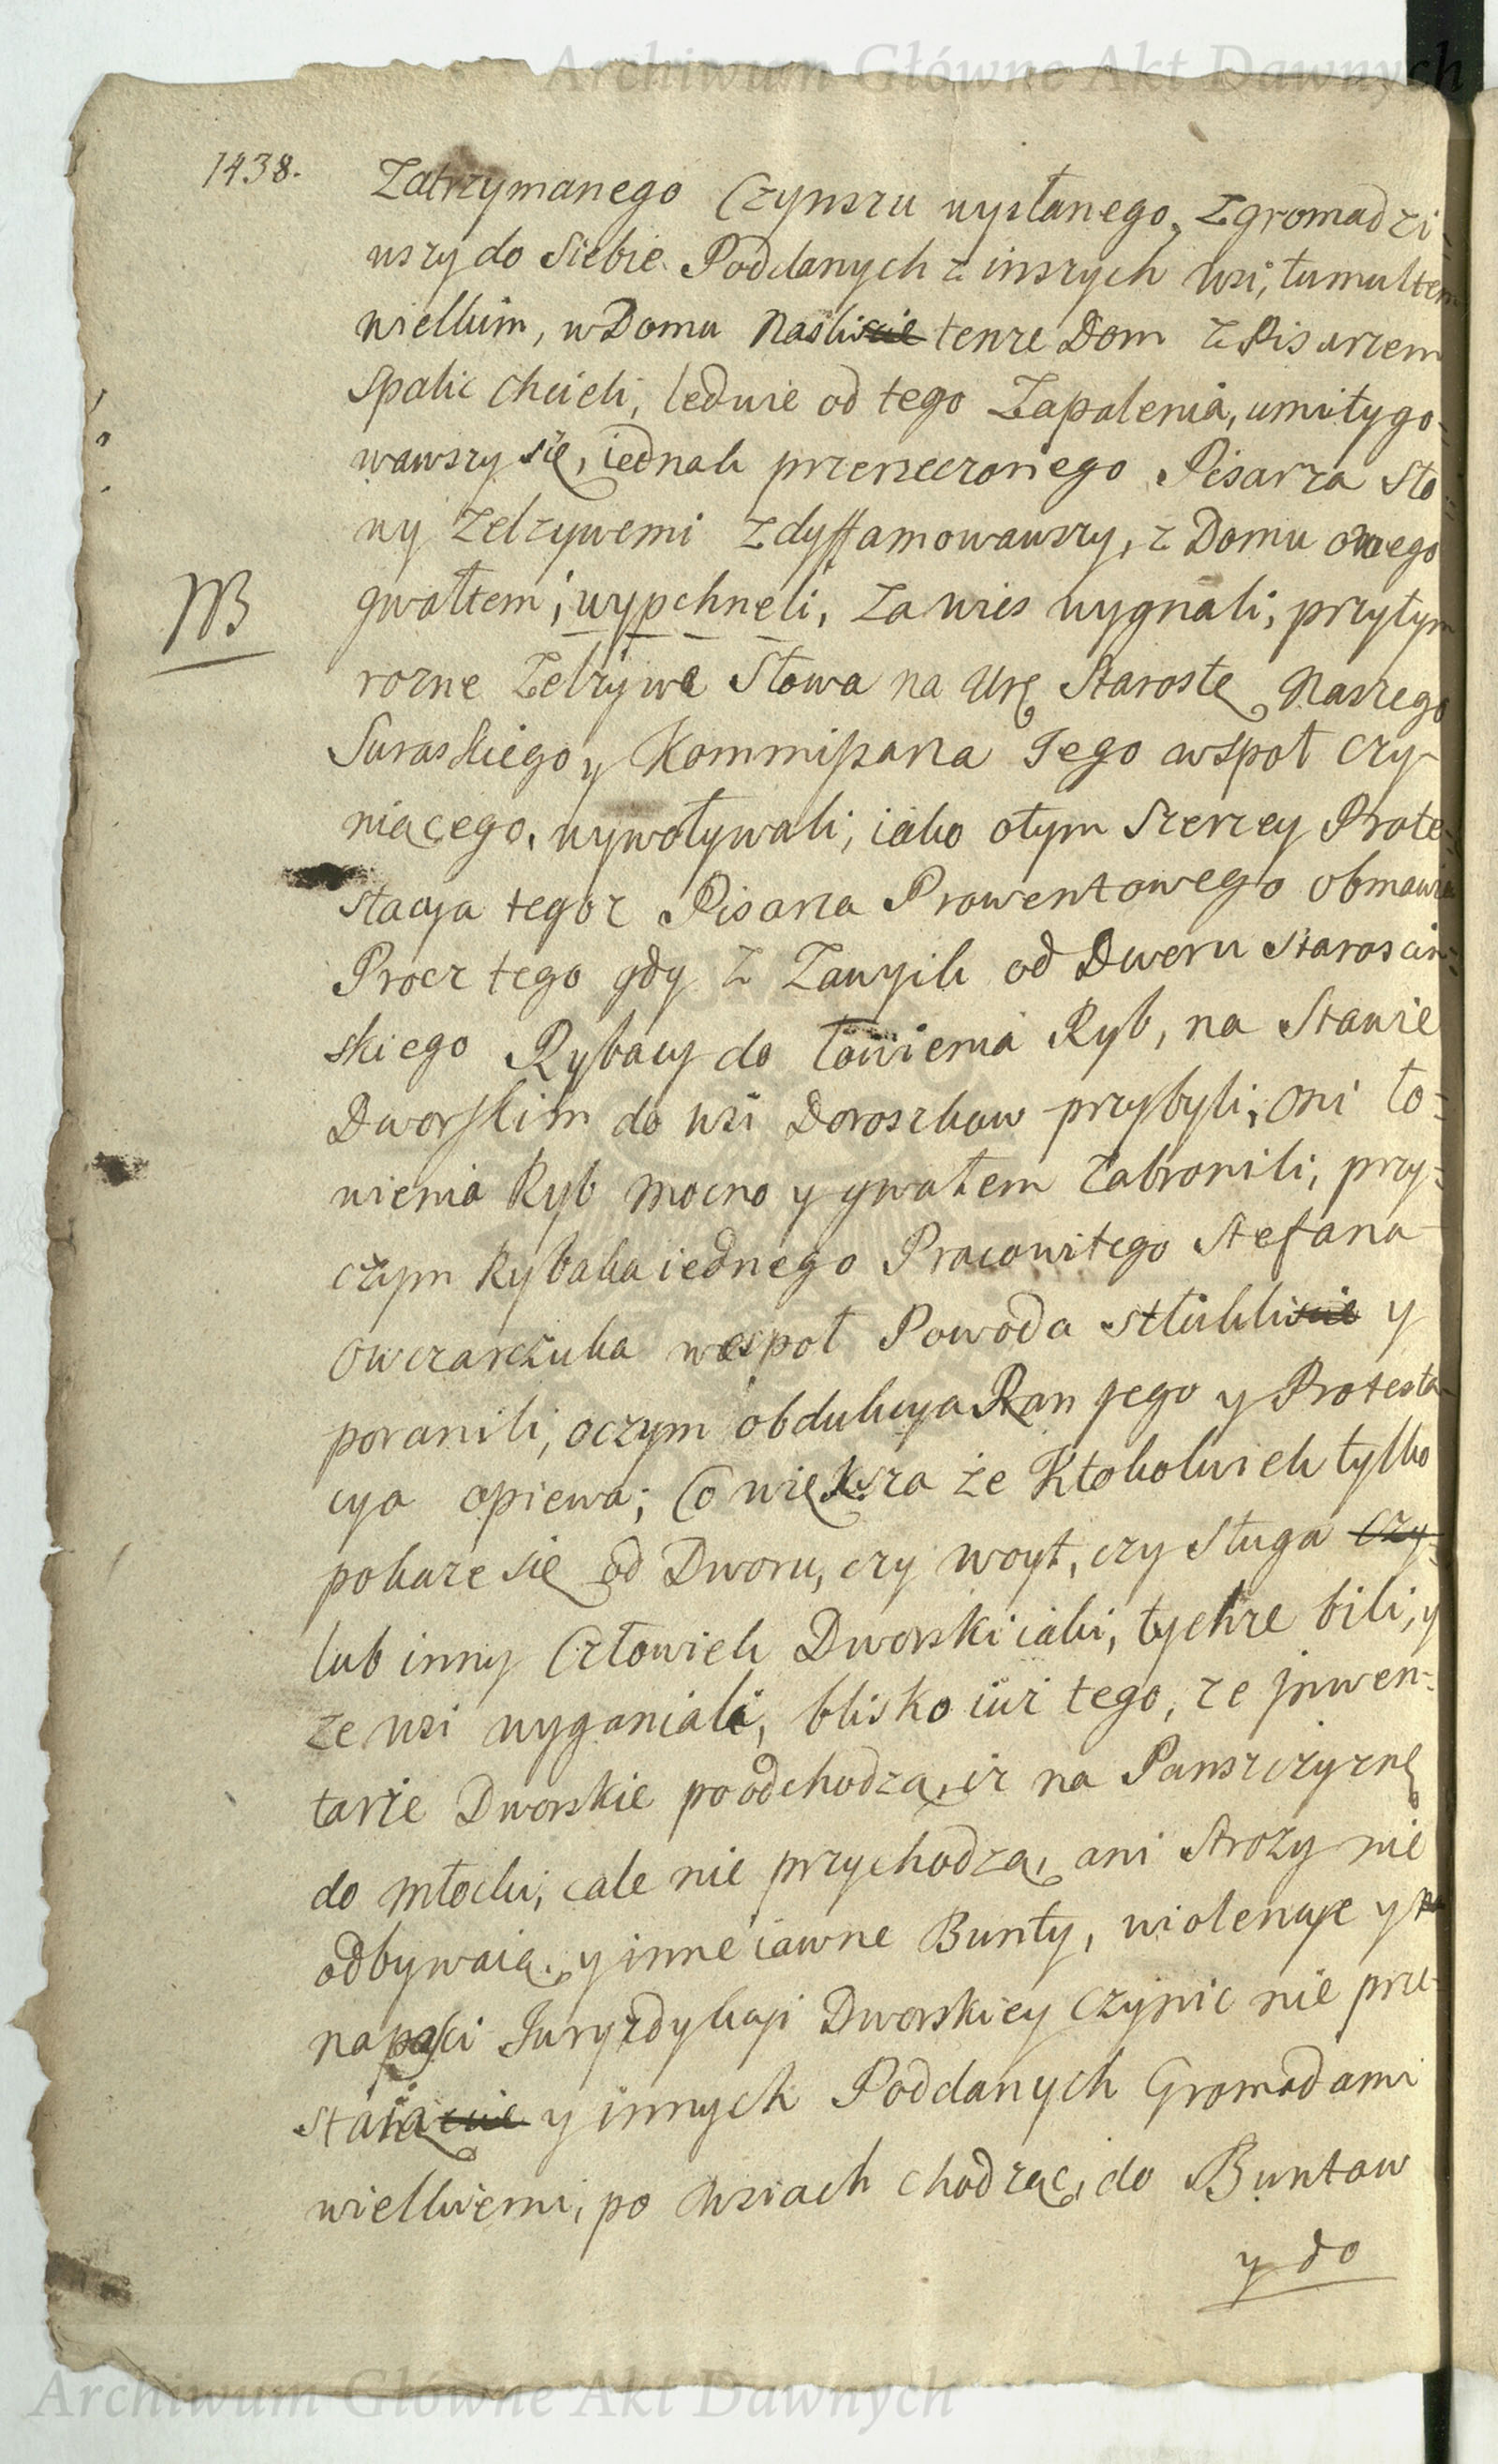 Archiwum Główne Akt Dawnych
1438.
Zatrzymanego Czynszu wysłanego, zgromadzi=
wszy do siebie Poddanych z inszych wsi, tumultem
wielkim, w Domu naśli scie tenze Dom z Pisarzem
spalic chcieli, ledwie od tego Zapalenia, umitygo=
wawszy się, iednak przerzeczonego Pisarza Sło=
wy zelzywemi zdyffamowawszy, z Domu onego
NB
gwałtem, wypchneli, za wies wygnali, przytym
rozne Zelzywe Słowa na Urę Starostę Naszego
Suraskiego y Kommissarza Jego wspoł czy-
niącego, wywoływali, iako otym szerzey Prote=
stacya tegoz Pisarza Prowentowego obmawia
Procz tego gdy z Zawyik od Dworu Starościn=
skiego Rybacy do łowienia Ryb, na Stawie
Dworskim do wsi Doroszkow przybyli, oni ło=
wienia Ryb mocno y gwałtem zabronili, przy=
czym Rybaka iednego Pracowitego Stefana
Owczarczuka wespoł Powoda stłukli scie y
poranili, oczym obdukcya Ran jego y Protesta=
cya opiewa; Co większa że Ktokolwiek tylko
pokaze się od Dworu, czy woyt, czy Sługa czy=
lub inny Człowiek Dworski iaki, tychze bili, y
ze wsi wyganiali, blisko iuż tego, ze jnwen=
tarze Dworskie poodchodzą, iz na Panszczyznę
do młocki, cale nie przychodzą, ani Stroży nie
odbywaią, y inne iawne Bunty, wiolencye y
napaści Juryzdykcyi Dworskiey czynic nie prze=
staią cie y innych Poddanych Gromadami
wielkiemi, po wsiach chodząc, do Buntow
y do
Archiwum Główne Akt Dawnych